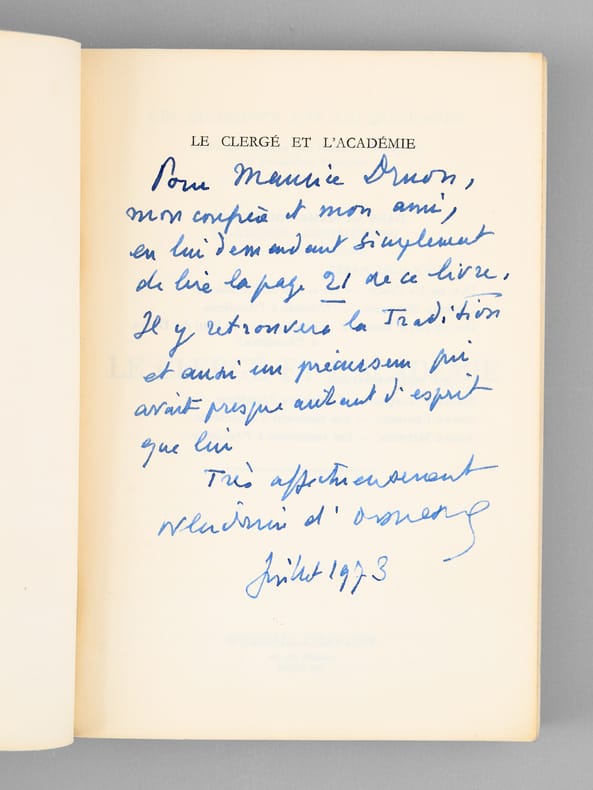 LE CLERGÉ ET L'ACADÉMIE
Pour Maurice Druon,
mon confrère et mon ami,
en lui demandant simplement
de lire la page 21 de ce livre.
Il y retrouvera la Tradition
et aussi un précurseur qui
avait presque autant d'esprit
que lui
Très affectueusement
Wladimir d'Ormesson
Juillet 1973